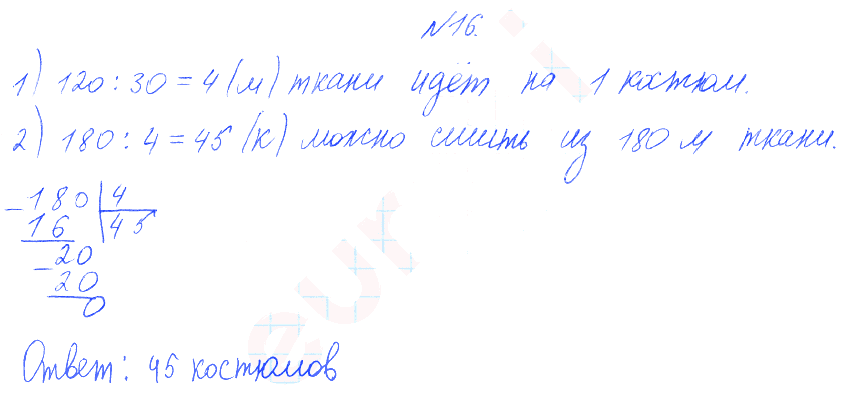 №16.
1) 120 : 30 = 4 (м) ткани идёт на 1 костюм.
2) 180 : 4 = 45 (к) можно сшить из 180 м ткани.
- 180 | 4
16 | 45
- 20
20
0
Ответ: 45 костюмов